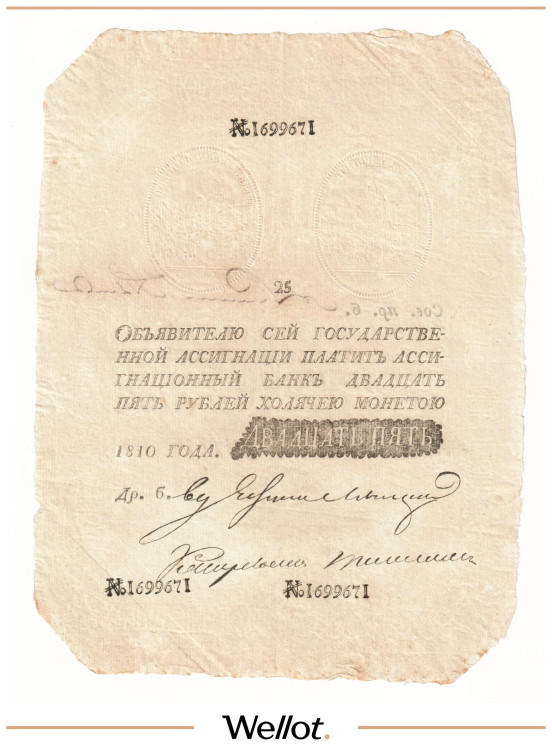 №1699671
25
Сов. пр. б.
ОБЪЯВИТЕЛЮ СЕЙ ГОСУДАРСТВЕ-
ННОЙ АССИГНАЦІИ ПЛАТИТЪ АССИ-
ГНАЦІОННЫЙ БАНКЪ ДВАДЦАТЬ
ПЯТЬ РУБЛЕЙ ХОЛЯЧЕЮ МОНЕТОЮ
1810 ГОДА. ДВАДЦАТЬ ПЯТЬ
Др. б.
№1699671 №1699671
Wellot.